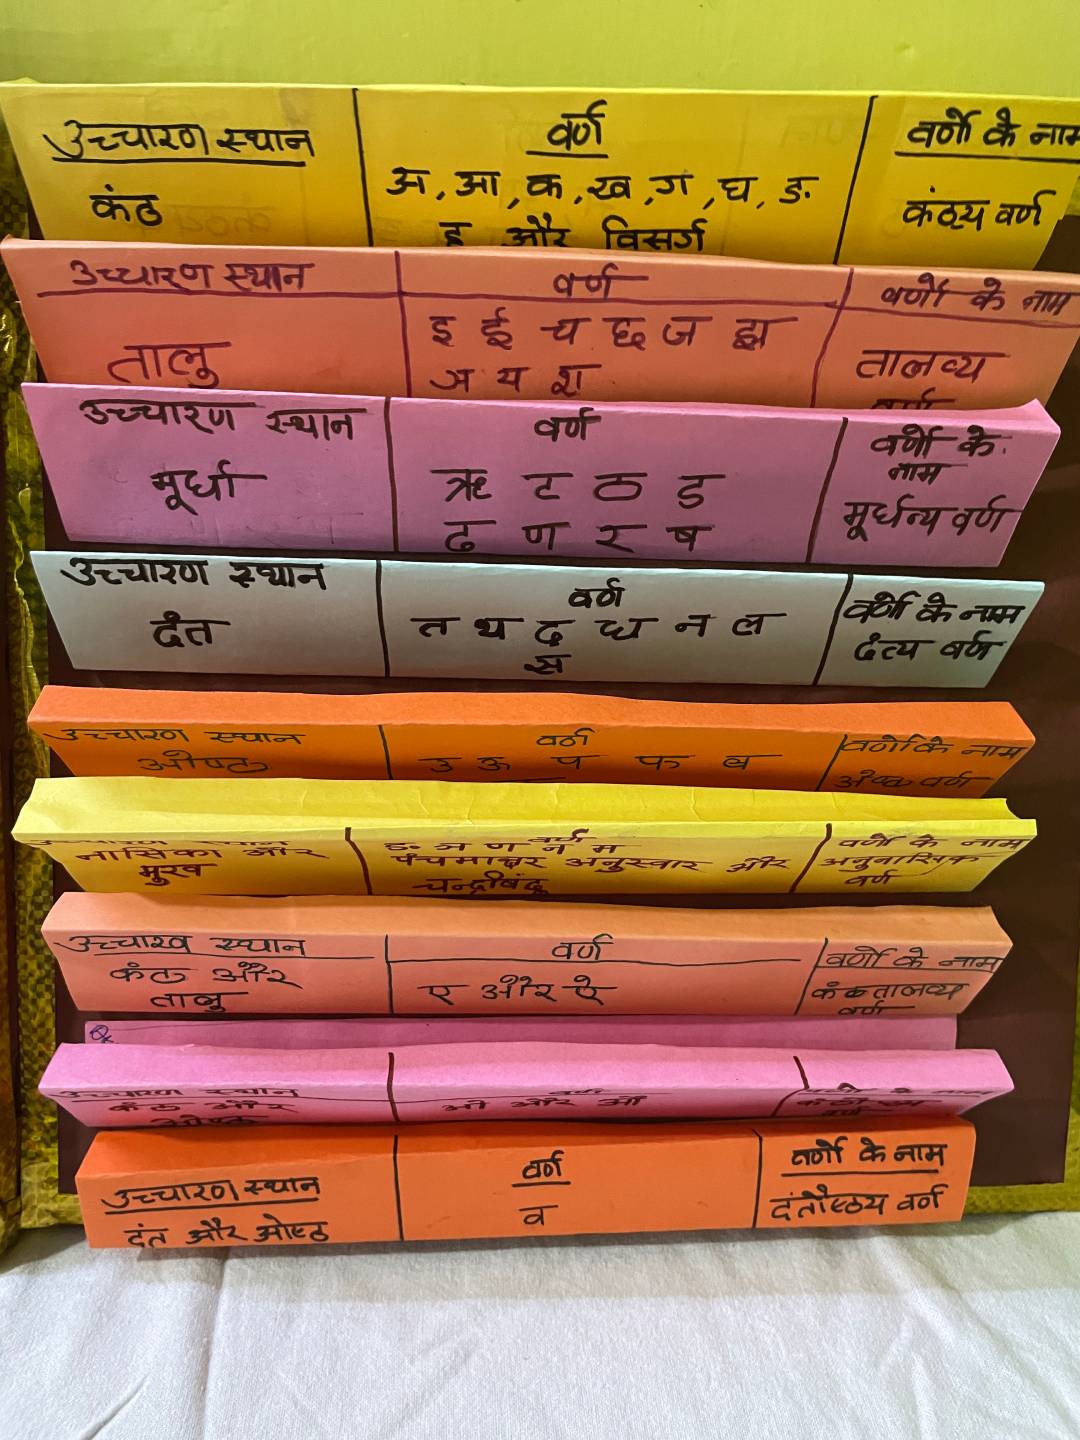 उच्चारण स्थान वर्ण वर्णो के नाम
कंठ अ, आ, क, ख, ग, घ, ङ. कंठ्य वर्ण
ह और विसर्ग
उच्चारण स्थान वर्ण वर्णो के नाम
तालु इ ई च छ ज झ तालव्य
ञ य श वर्ण
उच्चारण स्थान वर्ण वर्णो के
नाम
मूर्धा ऋ ट ठ ड मूर्धन्य वर्ण
ढ ण र ष
उच्चारण स्थान वर्ण वर्णो के नाम
दंत त थ द ध न ल दंत्य वर्ण
स
उच्चारण स्थान वर्ण वर्णो के नाम
ओष्ठ उ ऊ प फ ब वर्ण
स्थान वर्ण वर्णो के नाम
नासिका और ङ. ञ ण न म अनुनासिक
मुख पंचमाक्षर अनुस्वार और वर्ण
चन्द्रबिंदू
स्थान वर्ण वर्णो के नाम
कंठ और ए और ऐ कंठतालव्य
तालु वर्ण
उच्चारण स्थान वर्ण के नाम
कंठ और ओ और औ
ओष्ठ वर्ण
उच्चारण स्थान वर्ण वर्णो के नाम
दंत और ओष्ठ व दंतौष्ठय वर्ण